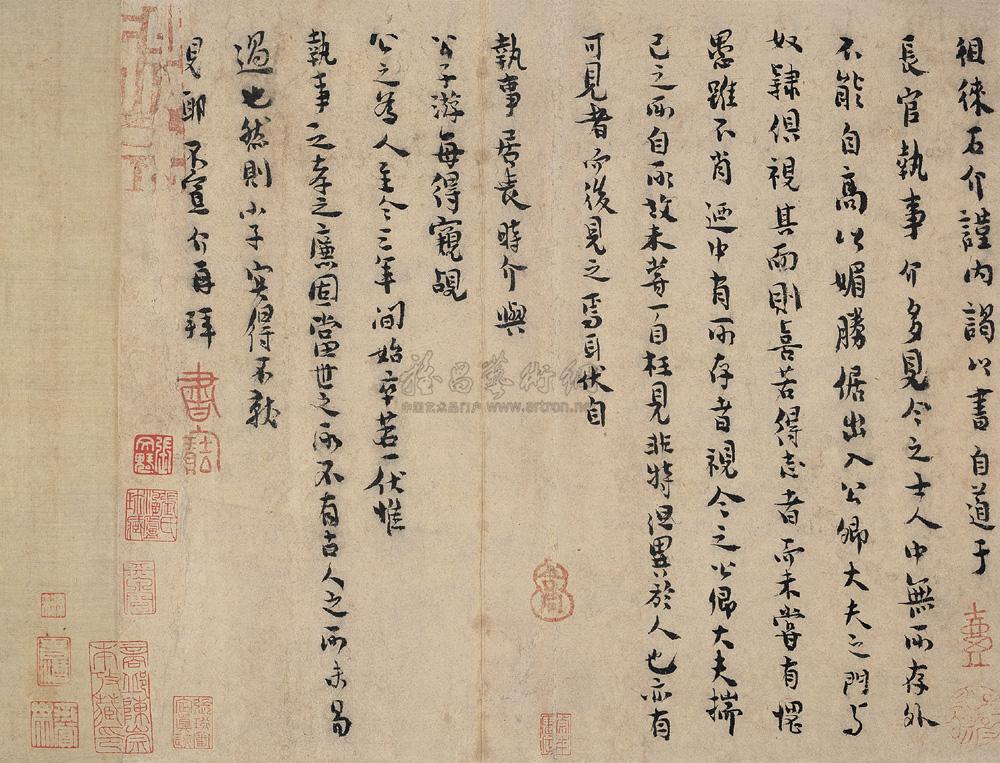 徂徠石介謹内謁以書自道于
長官執事介多見今之士人中無所存外
不能自高以媚勝倨出入公卿大夫之門与
奴隸俱視其面則喜若得志者而未嘗有愠
愚雖不肖迺中有所存者視今之公卿大夫揣
己之所自所故未嘗一自枉見非特但異於人也亦有
可見者而後見之焉耳伏自
執事居喪時介與
公子游每得窺覘
公之為人至今三年間始卒若一伏惟
執事之孝之廉固當世之所不有古人之所未易
過也然則小子安得不就
見耶不宣介再拜
書
中国艺术品门户 www.artron.net